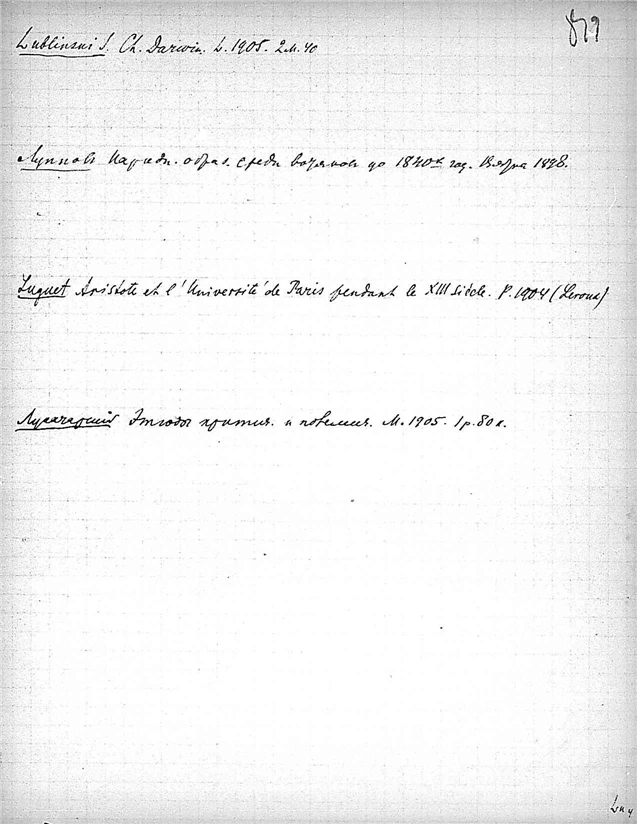 819
Lublinski S. Ch. Darwin. L. 1905. 2 M. 40
Луппов Народн. образ. среди вотяков до 1840х год. Вятка 1898.
Luquet Aristote et l'Université de Paris pendant le XIII siècle. P. 1904 (Leroux)
Луначарский Этюды критич. и полемич. М. 1905. 1 р. 80 к.